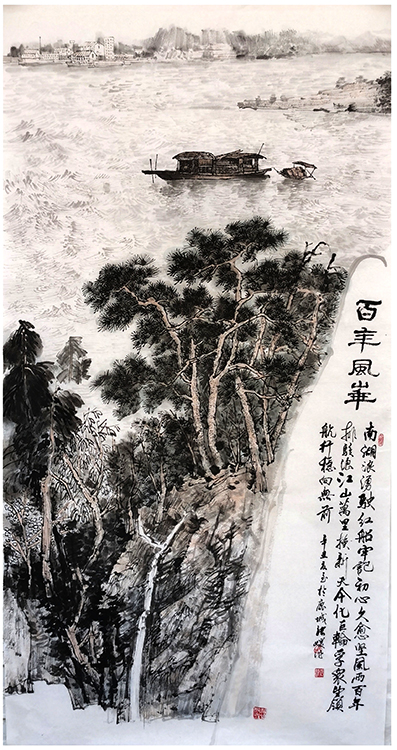 百年風華
南湖浪湧駛紅船牢記初心久愈堅風雨百年
排駭浪江山萬里換新天今化巨輪孚衆望領
航行穩向無前 辛丑夏於城